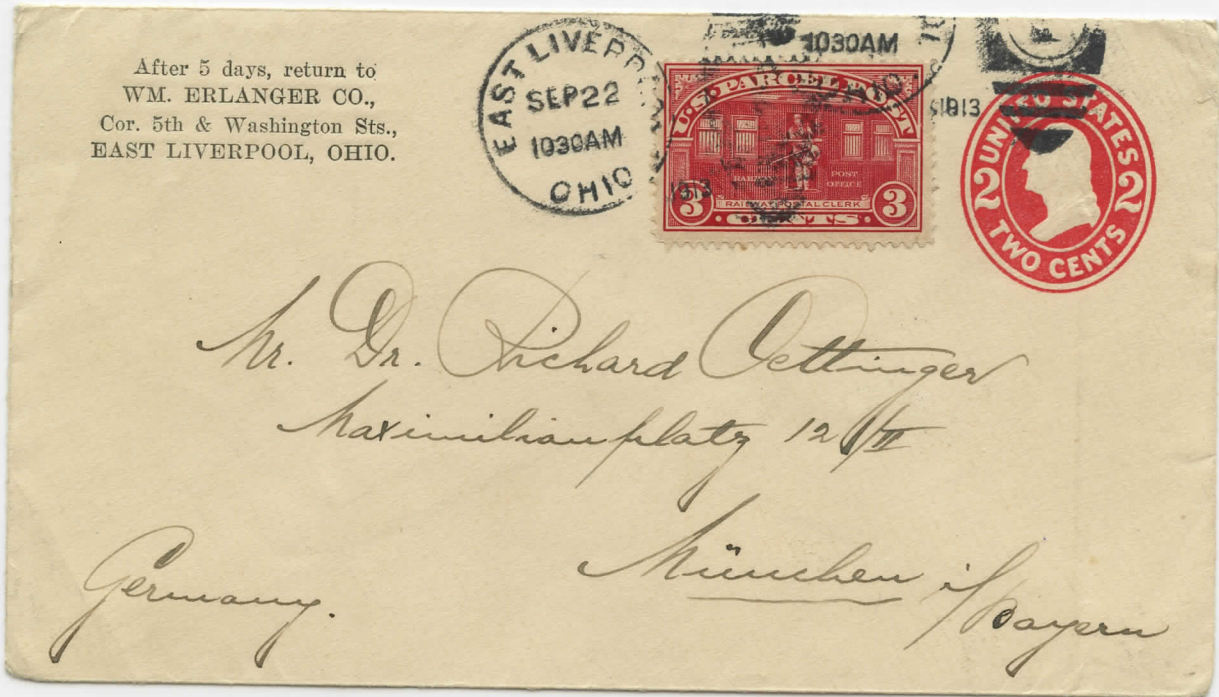 After 5 days, return to
WM. ERLANGER CO.,
Cor. 5th & Washington Sts.,
EAST LIVERPOOL, OHIO.
EAST LIVERPOOL
SEP 22
1030AM
1913
OHIO
1030AM
1913
U.S. PARCEL POST
POST
OFFICE
RAILWAY POSTAL CLERK
3 CENTS 3
UNITED STATES
2 2
TWO CENTS
Mr. Dr. Richard Oettinger
Maximiliansplatz 12/II
München i/Bayern
Germany.